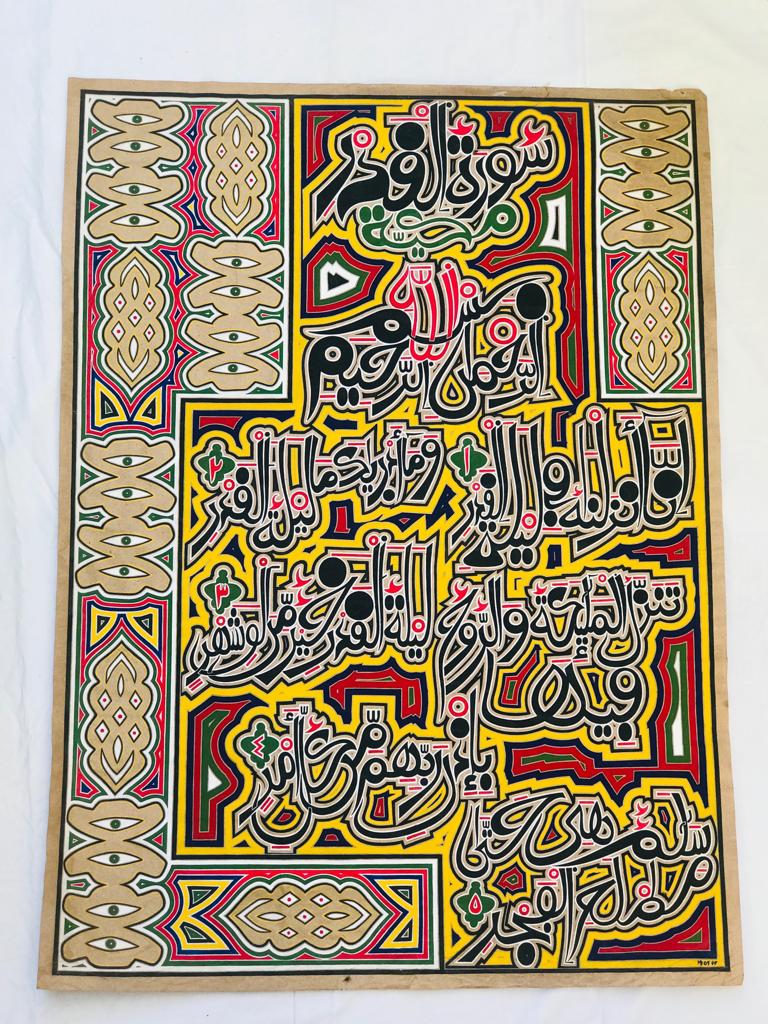 سورة القدر
مكية
بسم الله
الرحمن الرحيم
إنا أنزلنه في ليلة القدر ١ وما أدريك ما ليلة القدر ٢
ليلة القدر خير من ألف شهر ٣
تنزل الملئكة والروح
فيها
بإذن ربهم من كل أمر ٤
سلم هي حتى
مطلع الفجر ٥